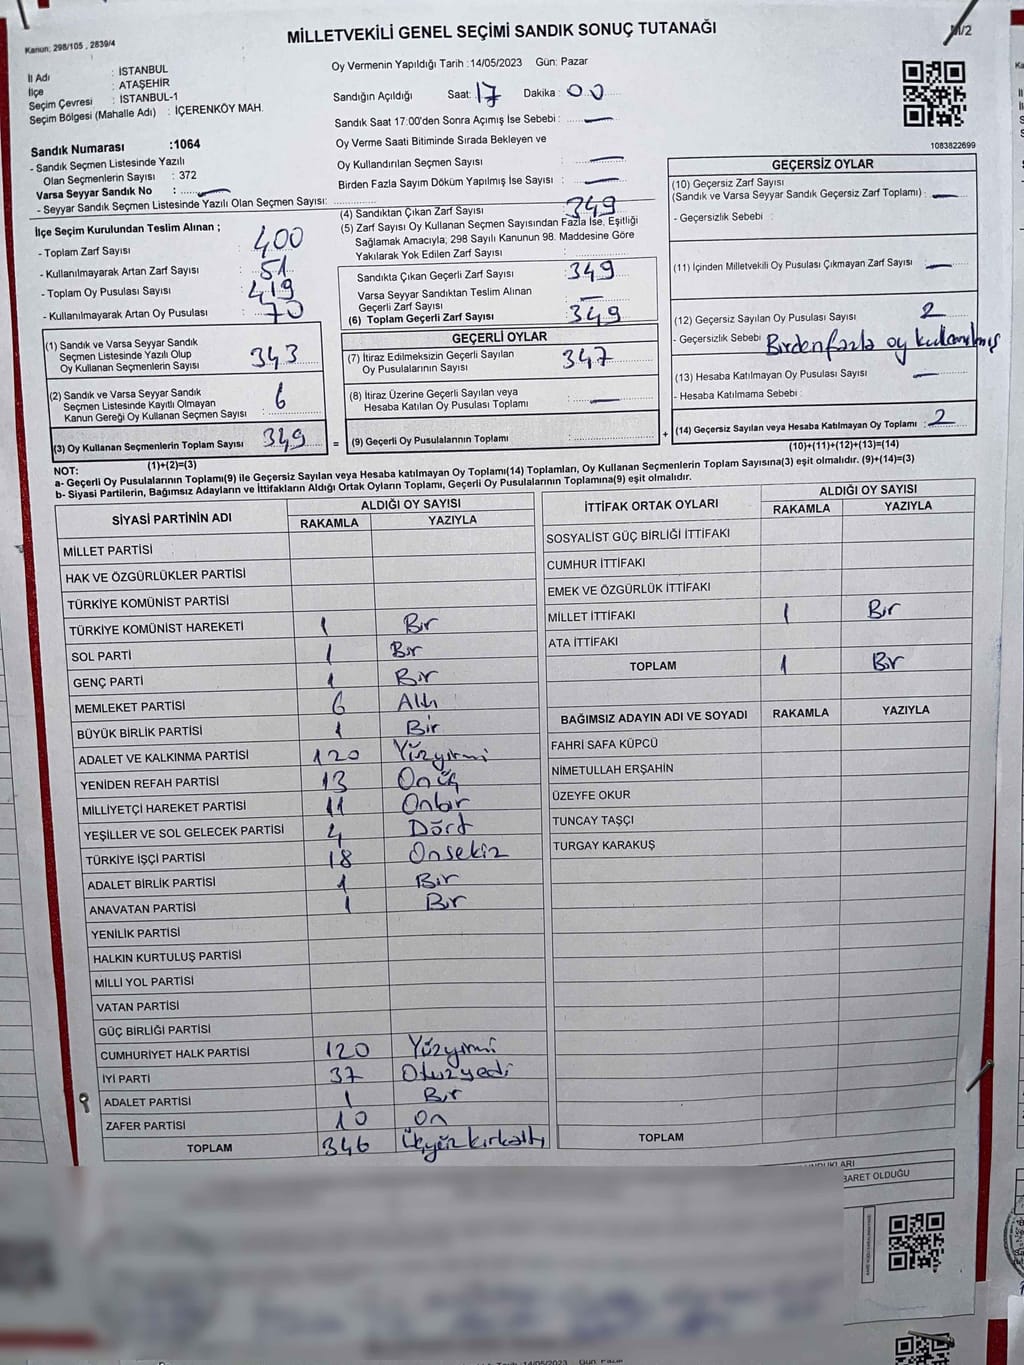 Kanun; 298/105 , 2839/4
MİLLETVEKİLİ GENEL SEÇİMİ SANDIK SONUÇ TUTANAĞI
M/2
İl Adı : İSTANBUL
İlçe : ATAŞEHİR
Seçim Çevresi : İSTANBUL-1
Seçim Bölgesi (Mahalle Adı) : İÇERENKÖY MAH.
Sandık Numarası :1064
- Sandık Seçmen Listesinde Yazılı
Olan Seçmenlerin Sayısı : 372
Varsa Seyyar Sandık No :
- Seyyar Sandık Seçmen Listesinde Yazılı Olan Seçmen Sayısı:
Oy Vermenin Yapıldığı Tarih :14/05/2023 Gün: Pazar
Sandığın Açıldığı Saat: 17 Dakika : 00
Sandık Saat 17:00'den Sonra Açımış İse Sebebi : —
Oy Verme Saati Bitiminde Sırada Bekleyen ve
Oy Kullandırılan Seçmen Sayısı : —
Birden Fazla Sayım Döküm Yapılmış İse Sayısı : —
1083822699
İlçe Seçim Kurulundan Teslim Alınan ;
- Toplam Zarf Sayısı : 400
- Kullanılmayarak Artan Zarf Sayısı : 51
- Toplam Oy Pusulası Sayısı : 419
- Kullanılmayarak Artan Oy Pusulası : 70
(1) Sandık ve Varsa Seyyar Sandık
Seçmen Listesinde Yazılı Olup
Oy Kullanan Seçmenlerin Sayısı : 343
(2) Sandık ve Varsa Seyyar Sandık
Seçmen Listesinde Kayıtlı Olmayan
Kanun Gereği Oy Kullanan Seçmen Sayısı : 6
(3) Oy Kullanan Seçmenlerin Toplam Sayısı 349
(1)+(2)=(3)
(4) Sandıktan Çıkan Zarf Sayısı : 349
(5) Zarf Sayısı Oy Kullanan Seçmen Sayısından Fazla İse, Eşitliği
Sağlamak Amacıyla; 298 Sayılı Kanunun 98. Maddesine Göre
Yakılarak Yok Edilen Zarf Sayısı :
Sandıkta Çıkan Geçerli Zarf Sayısı : 349
Varsa Seyyar Sandıktan Teslim Alınan
Geçerli Zarf Sayısı : —
(6) Toplam Geçerli Zarf Sayısı : 349
GEÇERLİ OYLAR
(7) İtiraz Edilmeksizin Geçerli Sayılan
Oy Pusulalarının Sayısı : 347
(8) İtiraz Üzerine Geçerli Sayılan veya
Hesaba Katılan Oy Pusulası Toplamı : —
= (9) Geçerli Oy Pusulalarının Toplamı : +
GEÇERSİZ OYLAR
(10) Geçersiz Zarf Sayısı
(Sandık ve Varsa Seyyar Sandık Geçersiz Zarf Toplamı) : —
- Geçersizlik Sebebi :
(11) İçinden Milletvekili Oy Pusulası Çıkmayan Zarf Sayısı : —
(12) Geçersiz Sayılan Oy Pusulası Sayısı : 2
- Geçersizlik Sebebi : Birden fazla oy kullanılmış
(13) Hesaba Katılmayan Oy Pusulası Sayısı : —
- Hesaba Katılmama Sebebi :
(14) Geçersiz Sayılan veya Hesaba Katılmayan Oy Toplamı : 2
(10)+(11)+(12)+(13)=(14)
NOT:
a- Geçerli Oy Pusulalarının Toplamı(9) ile Geçersiz Sayılan veya Hesaba katılmayan Oy Toplamı(14) Toplamları, Oy Kullanan Seçmenlerin Toplam Sayısına(3) eşit olmalıdır. (9)+(14)=(3)
b- Siyasi Partilerin, Bağımsız Adayların ve İttifakların Aldığı Ortak Oyların Toplamı, Geçerli Oy Pusulalarının Toplamına(9) eşit olmalıdır.
SİYASİ PARTİNİN ADI ALDIĞI OY SAYISI
RAKAMLA YAZIYLA
MİLLET PARTİSİ
HAK VE ÖZGÜRLÜKLER PARTİSİ
TÜRKİYE KOMÜNİST PARTİSİ
TÜRKİYE KOMÜNİST HAREKETİ 1 Bir
SOL PARTİ 1 Bir
GENÇ PARTİ 1 Bir
MEMLEKET PARTİSİ 6 Altı
BÜYÜK BİRLİK PARTİSİ 1 Bir
ADALET VE KALKINMA PARTİSİ 120 Yüzyirmi
YENİDEN REFAH PARTİSİ 13 Onüç
MİLLİYETÇİ HAREKET PARTİSİ 11 Onbir
YEŞİLLER VE SOL GELECEK PARTİSİ 4 Dört
TÜRKİYE İŞÇİ PARTİSİ 18 Onsekiz
ADALET BİRLİK PARTİSİ 1 Bir
ANAVATAN PARTİSİ 1 Bir
YENİLİK PARTİSİ
HALKIN KURTULUŞ PARTİSİ
MİLLİ YOL PARTİSİ
VATAN PARTİSİ
GÜÇ BİRLİĞİ PARTİSİ
CUMHURİYET HALK PARTİSİ 120 Yüzyirmi
İYİ PARTİ 37 Otuzyedi
ADALET PARTİSİ 1 Bir
ZAFER PARTİSİ 10 On
TOPLAM 346 Üçyüzkırkaltı
İTTİFAK ORTAK OYLARI ALDIĞI OY SAYISI
RAKAMLA YAZIYLA
SOSYALİST GÜÇ BİRLİĞİ İTTİFAKI
CUMHUR İTTİFAKI
EMEK VE ÖZGÜRLÜK İTTİFAKI
MİLLET İTTİFAKI 1 Bir
ATA İTTİFAKI
TOPLAM 1 Bir
BAĞIMSIZ ADAYIN ADI VE SOYADI RAKAMLA YAZIYLA
FAHRİ SAFA KÜPCÜ
NİMETULLAH ERŞAHİN
ÜZEYFE OKUR
TUNCAY TAŞÇI
TURGAY KARAKUŞ
TOPLAM
BARET OLDUĞU